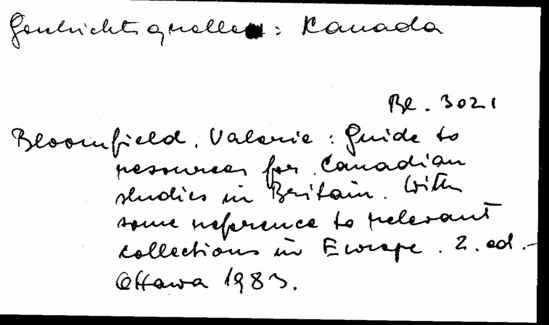 Geschichtsquellen: Kanada
Bl. 3021
Bloomfield, Valerie: Guide to
resources for Canadian
studies in Britain. With
some reference to relevant
collections in Europe. 2. ed. -
Ottawa 1983.